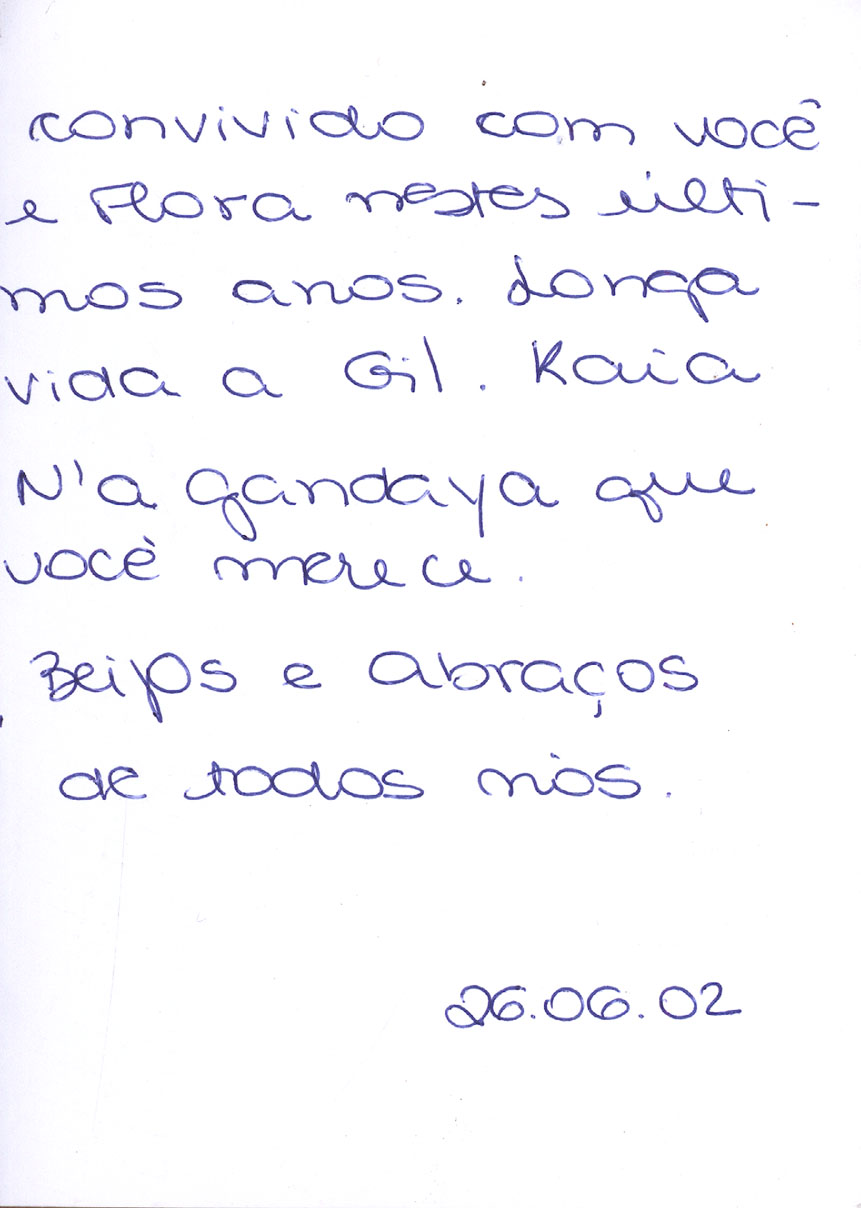 convivido com você
e Flora nestes últi-
mos anos. Longa
vida a Gil. Kaia
N'a gandaya que
você merece.
Beijos e abraços
de todos nós.
26.06.02